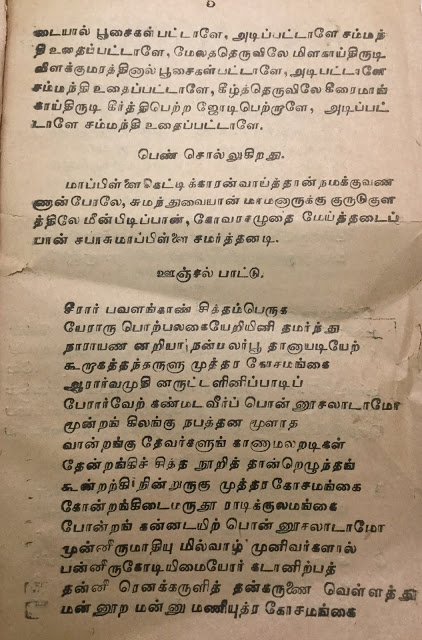 ௨
டையால் பூசைகள்பட்டாளே, அடிப்பட்டாளே சம்மந்
தி உதைப்பட்டாளே, மேலதெருவிலே மிளகாய்திருடி
விளக்குமரத்தினால் பூசைகள்பட்டாளே, அடிபட்டாளே
சம்மந்தி உதைப்பட்டாளே, கீழ்த்தெருவிலே கீரைமாங்
காய்திருடி கீர்த்திபெற்ற ஜோடிபெற்றாளே, அடிப்பட்
டாளே சம்மந்தி உதைப்பட்டாளே.
பெண் சொல்லுகிறது.
மாப்பிள்ளைகெட்டிக்காரன்வாய்த்தான்நமக்குவண
ணான்போலே, சுமந்துவையான் மாமனாருக்கு குருடுகுள
த்திலே மீன்பிடிப்பான், கோவரசுழுதை மேய்த்தடைப்
பான் சபாசுமாப்பிள்ளை சமர்த்தனடி.
ஊஞ்சல் பாட்டு.
சீரார் பவளங்கான் சித்தம்பெருக
யேராரு பொற்பலகையேறியினி தமர்ந்து
நாராயண னறியா நன்மலர்பூ தானாயடியேற்
கூருகத்தந்தருளு முத்தர கோசமங்கை
ஆரார்வமுதி னருட்டளினிப்பாடிப்
போரார்வேற் கண்மடவீர்ப் பொன் னூசலாடாமோ
மூன்றங் கிலங்கு நயத்தன மூளாத
வான்றங்கு தேவர்களுங் காணாமலறடிகள்
தேன்றங்கி சித்த நூறித் தான்றெழுந்தங்
கூன்றற்கி நின்றுருகு முத்தர கோசமங்கை
கோன்றங்கிடைமருதூ ராடிக்குலமங்கை
போன்றங் கன்னடயிற் பொன் னூசலாடாமோ
முன்னீருமாதியு மில்வாழ் முனிவர்களால்
பன்னிருகோடியிமையோர் கடானிற்பத்
தன்னி ரெனக்கருளித் தன்கருணை வெள்ளத்து
மன்னூற மன்னு மணியுத்ர கோசமங்கை